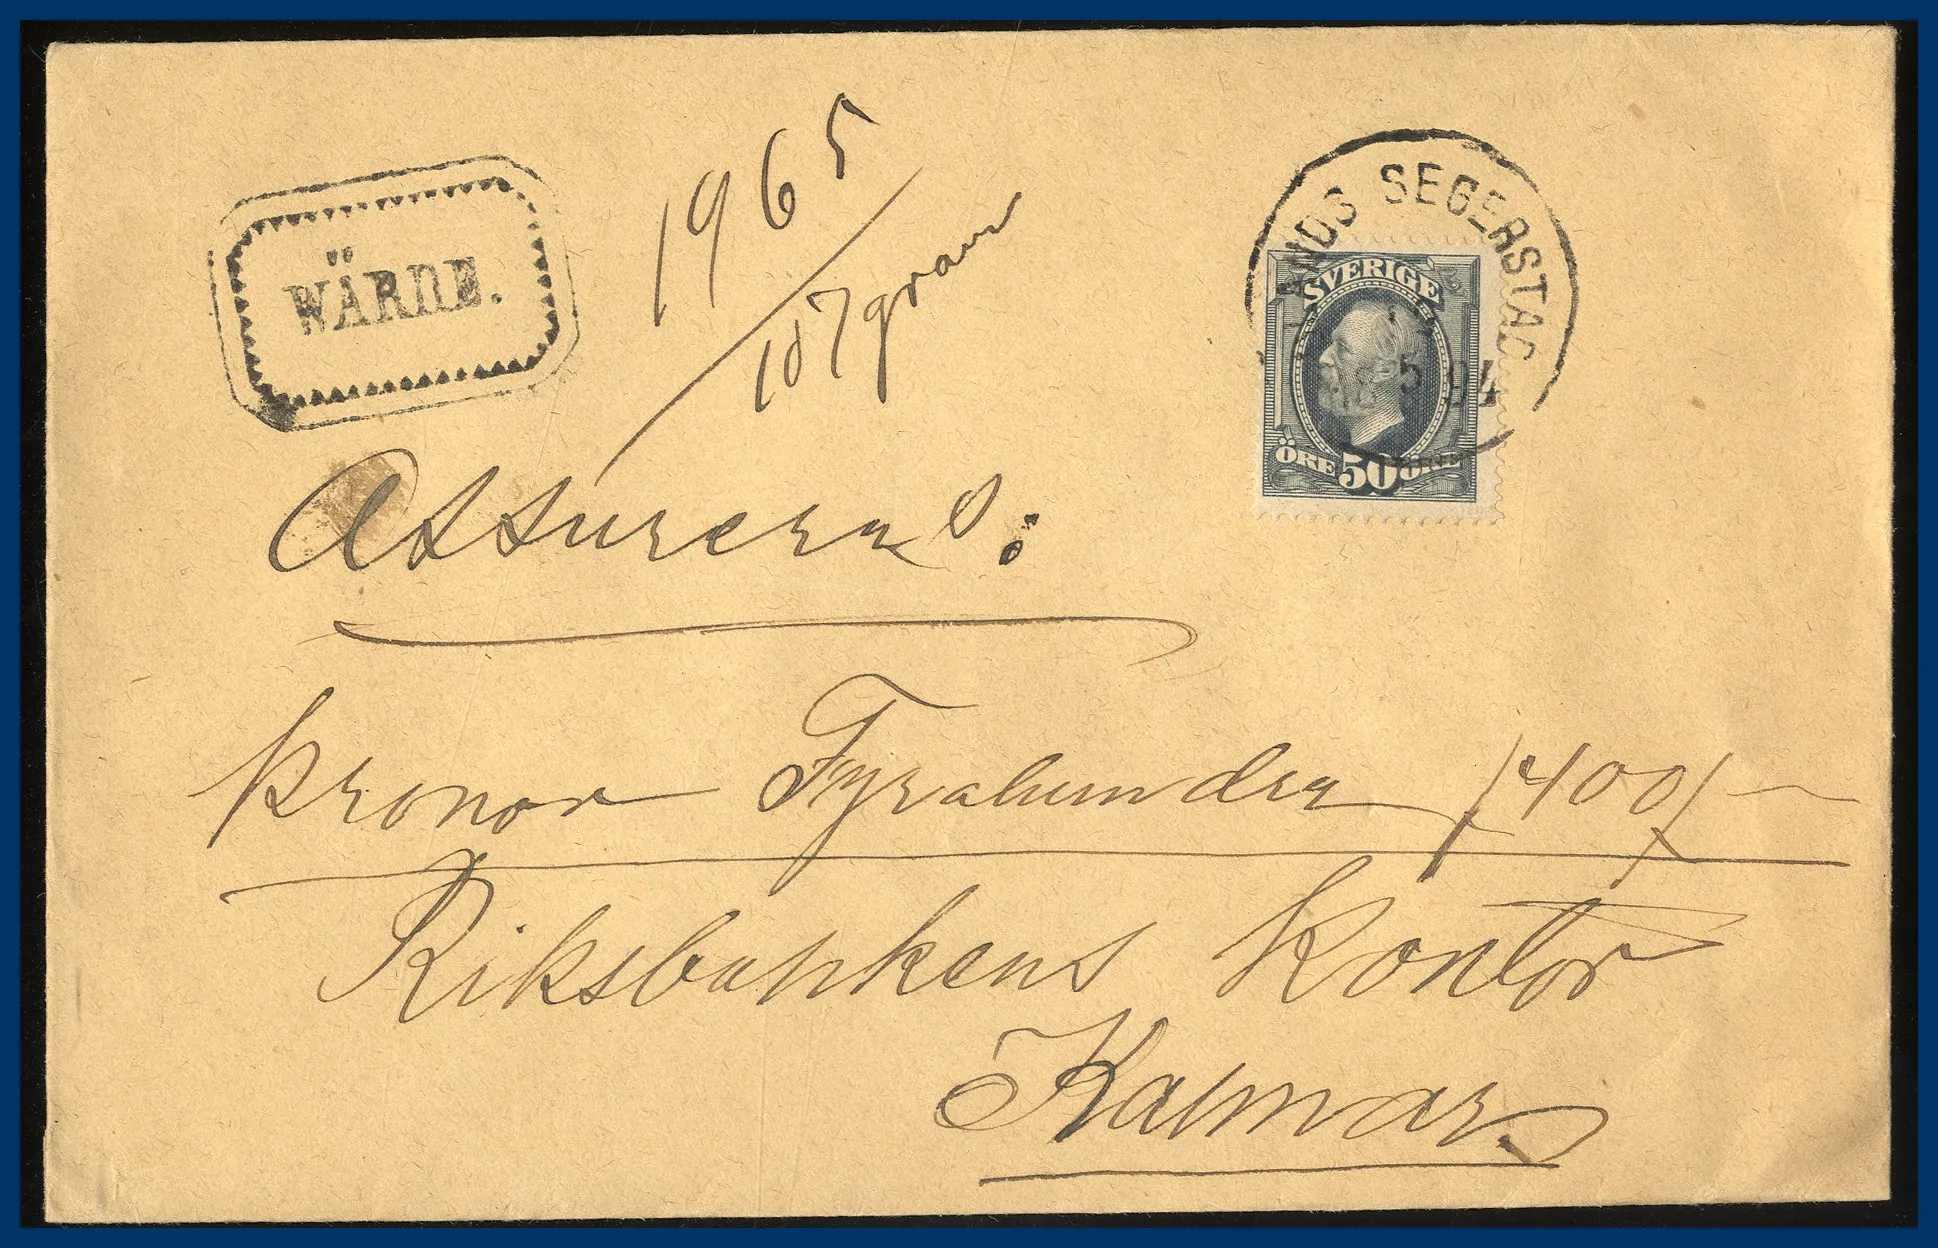 WÄRDE.
1965
107 gram
LANDS SEGERSTAD
5 04
SVERIGE
ÖRE 50 ÖRE
Assureras:
Kronor Fyrahundra /400/
Riksbankens Kontor
Kalmar